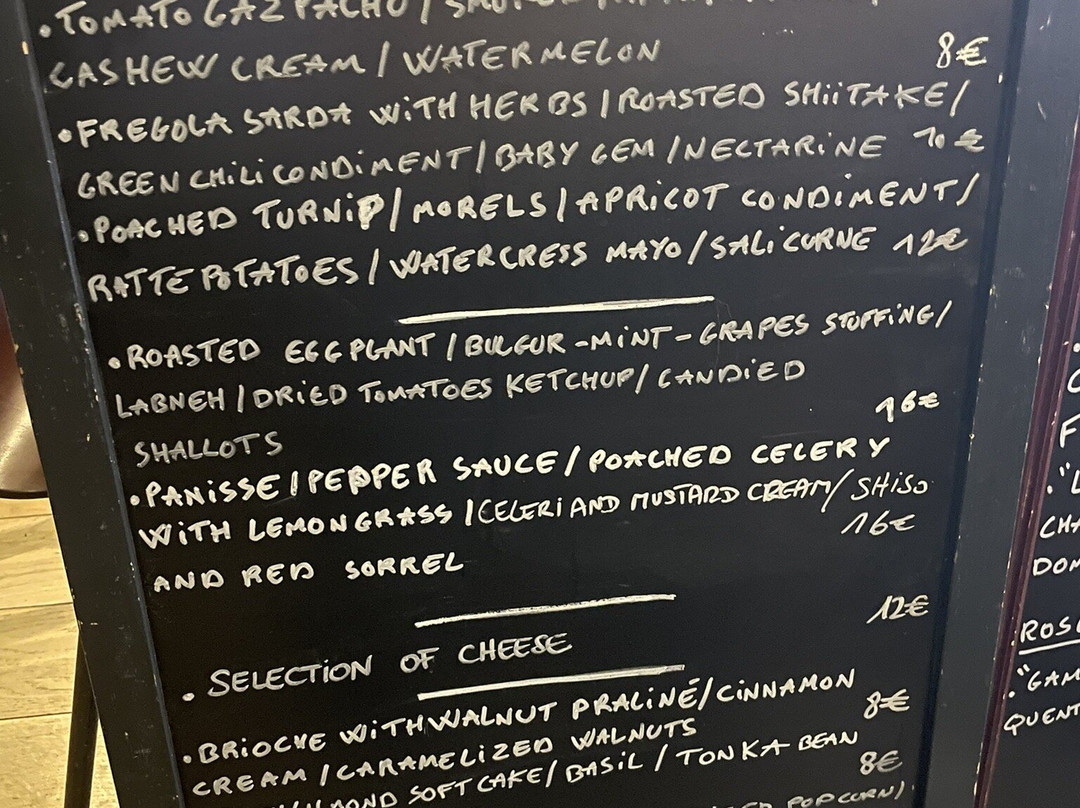 .TOMATO GAZPACHO /
CASHEW CREAM / WATERMELON 8€
.FREGOLA SARDA WITH HERBS / ROASTED SHIITAKE /
GREEN CHILI CONDIMENT / BABY GEM / NECTARINE 10€
.POACHED TURNIP / MORELS / APRICOT CONDIMENT /
RATTE POTATOES / WATERCRESS MAYO / SALICORNE 12€
.ROASTED EGGPLANT / BULGUR-MINT-GRAPES STUFFING /
LABNEH / DRIED TOMATOES KETCHUP / CANDIED
SHALLOTS 16€
.PANISSE / PEPPER SAUCE / POACHED CELERY
WITH LEMONGRASS / CELERI AND MUSTARD CREAM / SHISO
AND RED SORREL 16€
. SELECTION OF CHEESE 12€
.BRIOCHE WITH WALNUT PRALINÉ / CINNAMON
CREAM / CARAMELIZED WALNUTS 8€
SOFT CAKE / BASIL / TONKA BEAN
8€
POPCORN)
."L
CHA
DOM
ROS
."GAM
QUENT